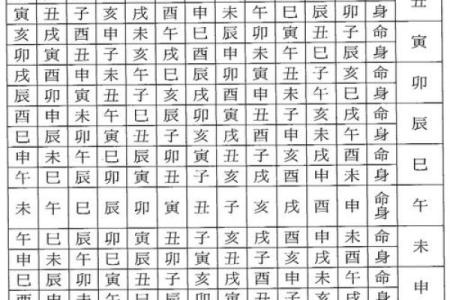 寅 丑 子 亥 戌 酉 申 未 午 巳 辰 卯 身 丑
亥 戌 酉 申 未 午 巳 辰 卯 寅 丑 子 命 寅
卯 寅 丑 子 亥 戌 酉 申 未 午 巳 辰 身
戌 酉 申 未 午 巳 辰 卯 寅 丑 子 亥 命 卯
辰 卯 寅 丑 子 亥 戌 酉 申 未 午 巳 身
酉 申 未 午 巳 辰 卯 寅 丑 子 亥 戌 命 辰
巳 辰 卯 寅 丑 子 亥 戌 酉 申 未 午 身
申 未 午 巳 辰 卯 寅 丑 子 亥 戌 酉 命 巳
午 巳 辰 卯 寅 丑 子 亥 戌 酉 申 未 身
未 午 巳 辰 卯 寅 丑 子 亥 戌 酉 申 命身 午
午 巳 辰 卯 寅 丑 子 亥 戌 酉 申 未 命 未
申 未 午 巳 辰 卯 寅 丑 子 亥 戌 酉 身
巳 辰 卯 寅 丑 子 亥 戌 酉 申 未 午 命 申